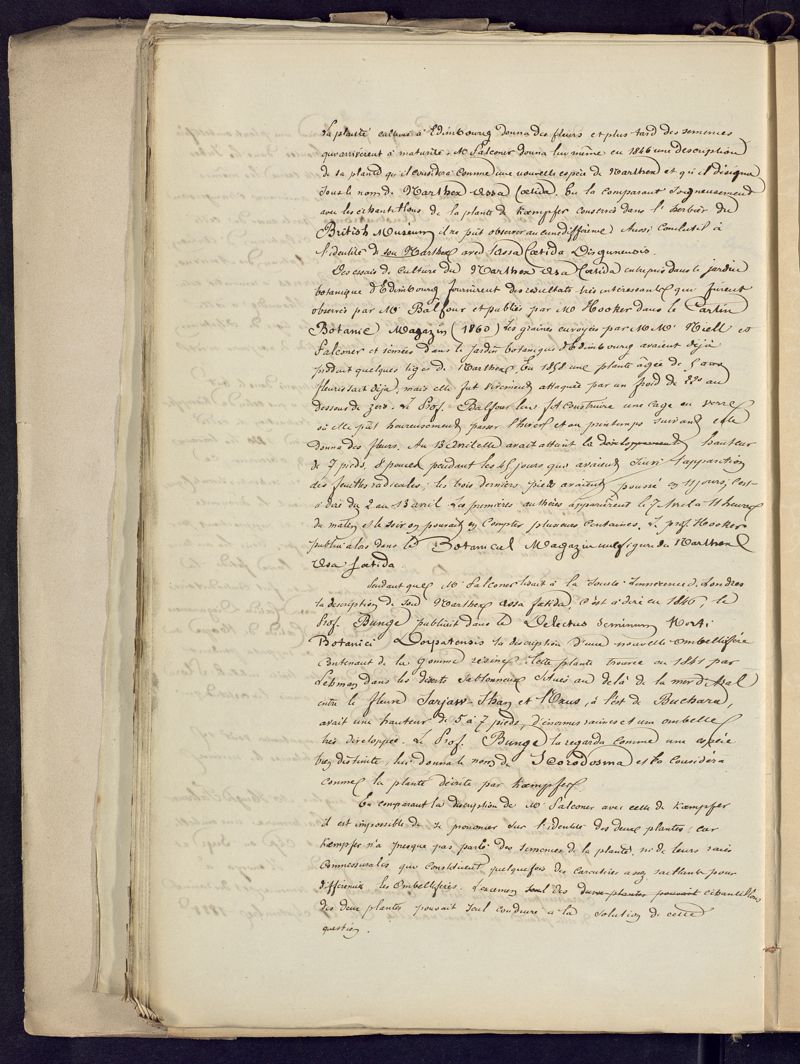 La plante cultivée à Edimbourg donna des fleurs et plus tard des semences
qui arrivèrent à maturité. Mr Falconer donna lui même en 1846 une description
de sa plante qu'il considéra comme une nouvelle espèce de Narthex et qu'il désigna
sous le nom de Narthex Assa foetida. En la comparant soigneusement
avec les échantillons de la plante de Kaempfer conservés dans l'herbier du
British Museum, il ne pût observer aucune différence. Aussi conclut il à
l'identité de son Narthex avec l'Assa foetida Disgunensis.
Des essais de culture du Narthex Asa foetida entrepris dans le jardin
botanique d'Edimbourg fournirent des resultats très interessants qui furent
observés par Mr Balfour et publiés par Mr Hooker dans le
Botanic Magazin (1860) Les graines envoyées par MMrs et
Falconer et semées dans le Jardin botanique d'Edimbourg avaient déjà
produit quelques tiges de Narthex. En 1858 une plante âgée de ans
fleurissait déjà, mais elle fut vivement attaquée par un froid de au
dessous de zero. Le Prof. Balfour leur fit construire une cage en verre
où elle pût heureusement passer l'hiver et au printemps suivant elle
donna des fleurs. Au 13 Avril elle avait atteint la developpement hauteur
de 7 pieds, 8 pouces pendant les 45 jours qui avaient suivi l'apparition
des feuilles radicales; les trois derniers pieds avaient poussé en 11 jours, c'est-
à-dire du 2 au 13 avril. Les premières anthères apparurent le 7 Avril à 11 heures
du matin et le soir on pouvait en compter plusieurs centaines. Le prof. Hooker
publia alors dans le Botanical Magazin une figure du Narthex
Asa foetida
Pendant que Mr Falconer lisait à la de Londres
la description de son Narthex Assa foetida, c'est à dire en 1846, le
Prof. Bunge publiait dans le Delectus Seminum Horti
Botanici Dorpatensis la description d'une nouvelle ombellifère
contenant de la gomme résine. Cette plante trouvée en 1841 par
Lehman dans les déserts sablonneux situés au delà de la mer d'Aral
entre le fleuve et l'Oxus, à l'est de Buchara,
avait une hauteur de 5 à 7 pieds, d'énormes racines et une ombelle
très developpée. Le Prof. Bunge la regarda comme une espèce
bien distincte, lui donna le nom de Scorodosma et la considéra
comme la plante décrite par Kaempfer
En comparant la description de Mr Falconer avec celle de Kaempfer
il est impossible de se prononcer sur l'identité des deux plantes; car
Kaempfer n'a presque pas parlé des semences de la plante, ni de leurs raies
commissurales qui constituent quelquefois des caractères assez saillants pour
différencier les ombellifères. L'examen seul des deux plantes pouvait échantillons
des deux plantes pouvait seul conduire à la solution de cette
question.